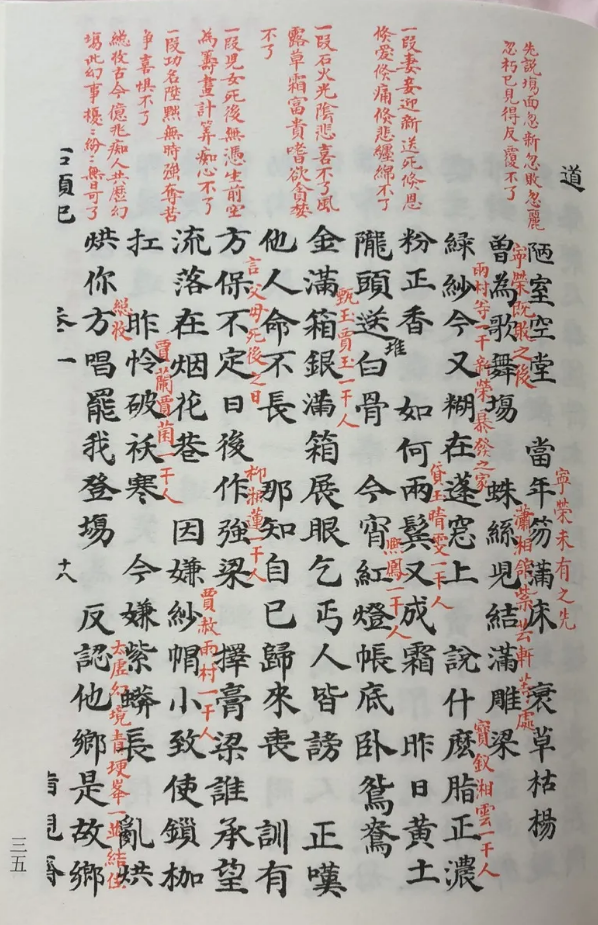 先說塲面忽新忽敗忽麗
忽朽已見得反覆不了
一段妻妾迎新送死倐恩
倐愛倐痛倐悲纏綿不了
一段石火光陰悲喜不了風
露草霜富貴嗜欲貪婪
不了
一段兒女死後無憑生前空
為籌畫計算痴心不了
一段功名陞黜無時强奪苦
争喜惧不了
總收古今億兆痴人共歷幻
塲此幻事擾〻紛〻無日可了
道
寧榮未有之先
陋室空堂 當年笏滿床 衰草枯楊
寧榮既敗之後
瀟湘館紫芸軒等處
曽為歌舞塲 蛛絲兒結滿雕梁
雨村等一干新榮暴發之家
寳釵湘雲一干人
綠紗今又糊在蓬窓上 說什麽脂正濃
貸玉晴雯一干人
粉正香 如何兩鬂又成霜 昨日黄土
堆
熙鳳一干人
隴頭送白骨 今宵紅燈帳底卧鴛鴦
甄玉賈玉一干人
金滿箱銀滿箱展眼乞丐人皆謗 正嘆
他人命不長 那知自己歸來喪 訓有
言父母死後之日
柳湘蓮一干人
方保不定日後作強梁 擇膏梁誰承望
賈赦雨村一干人
流落在烟花巷 因嫌紗帽小致使鎖枷
賈蘭賈菌一干人
扛 昨怜破袄寒 今嫌紫蟒長 亂烘
總收
太虛幻境青埂峯一並結住
烘你方唱罷我登塲 反認他鄉是故鄉
石頭記 卷一 十八
三五